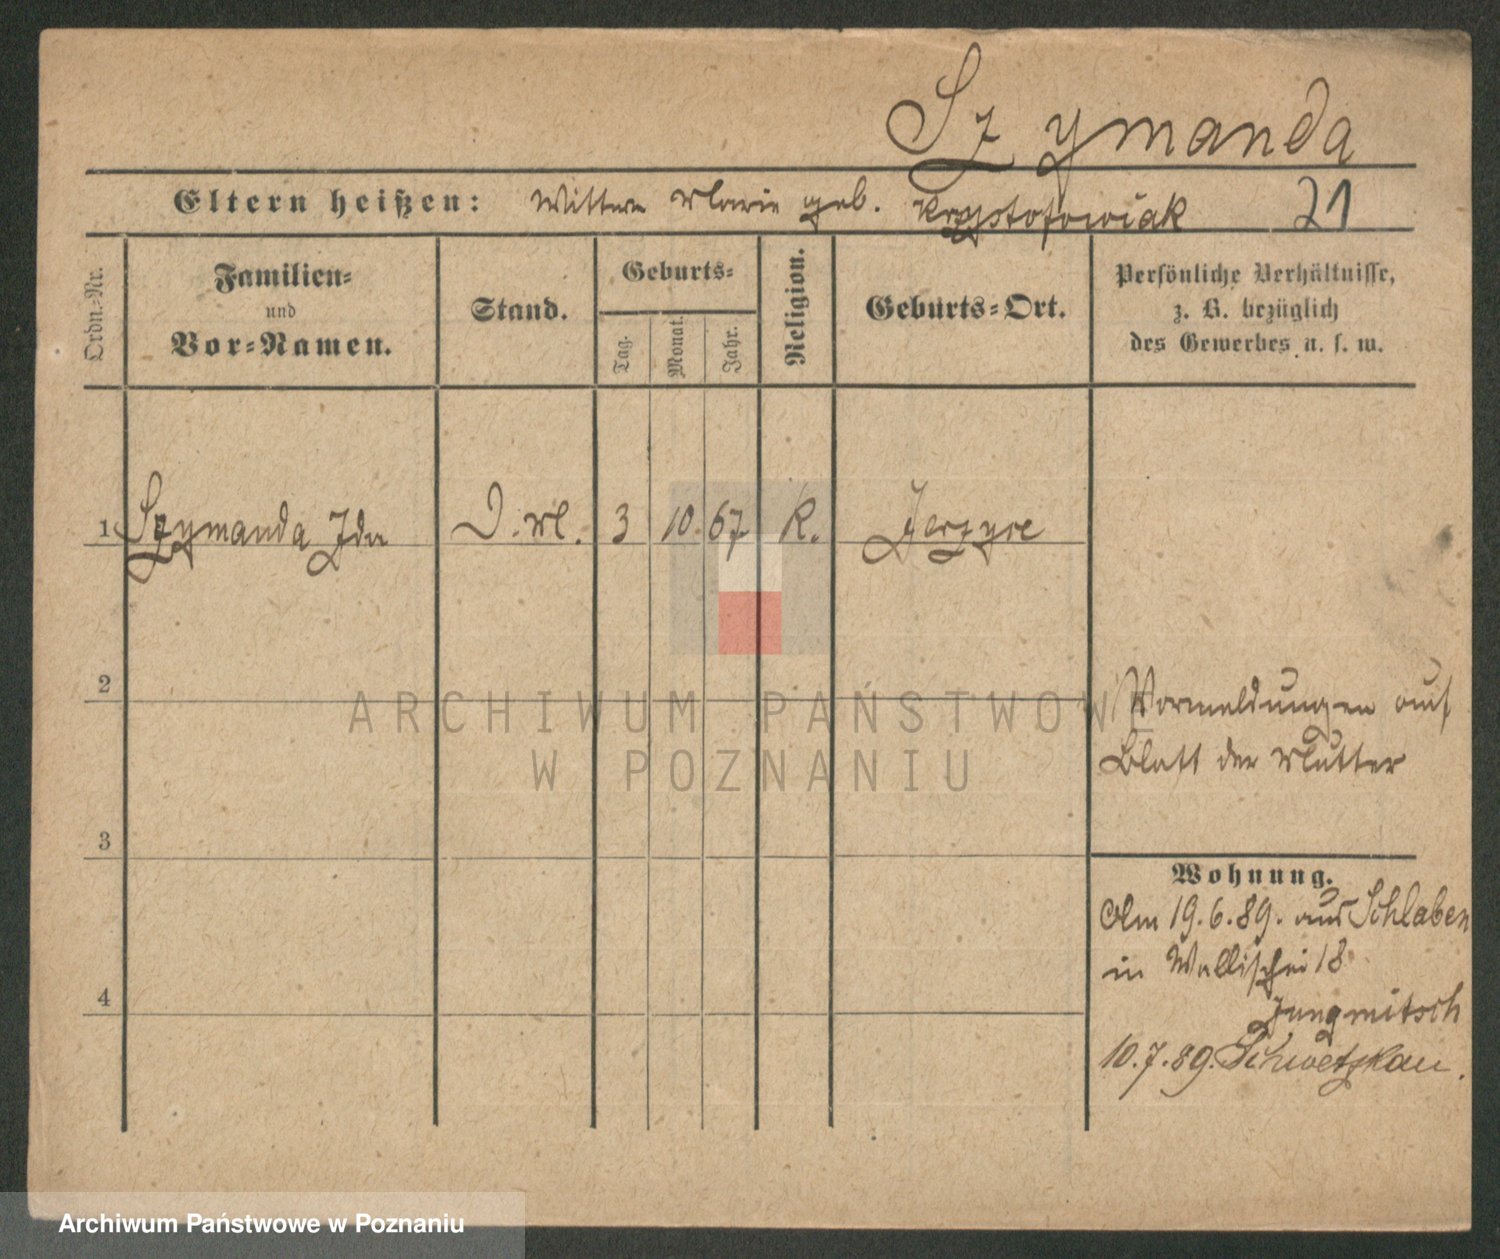 Szymanda
Eltern heißen: Wittwe Marie geb. Krzystofowiak 21
Ordn.-Nr.
Familien-
und
Vor-Namen.
Stand.
Geburts-
Tag.
Monat.
Jahr.
Religion.
Geburts-Ort.
Persönliche Verhältnisse,
z. B. bezüglich
des Gewerbes u. s. w.
1 Szymanda Ida D. M. 3 10 67 K. Jerzyce
2
3
4
Vormeldungen auf
Blatt der Mutter
Wohnung.
Am 19.6.89. aus Schlaben
in Wallischei 18
10.7.89. Schwetzkau.
ARCHIWUM PAŃSTWOWE
W POZNANIU
Archiwum Państwowe w Poznaniu